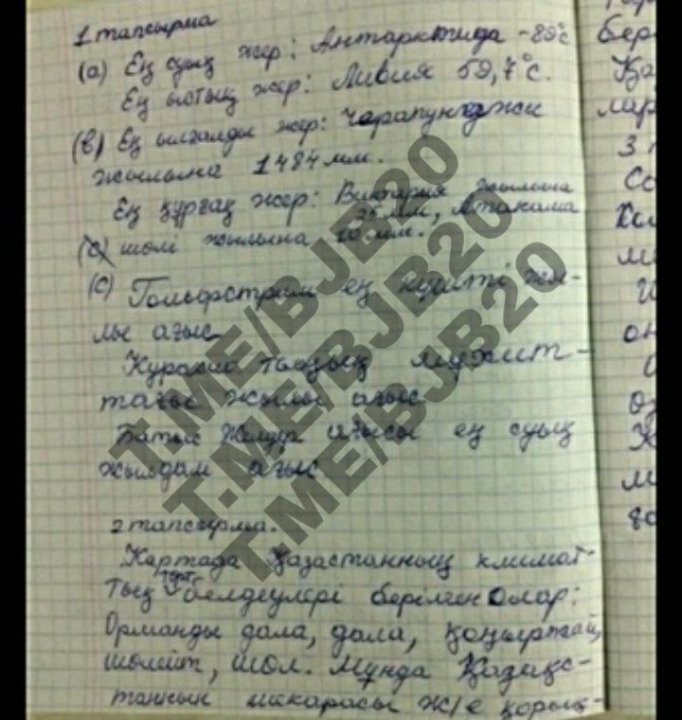 1 тапсырма
(а) Ең суық жер: Антарктида -89°с
Ең ыстық жер: Ливия 59,7°с.
(в) Ең ылғалды жер: Чарапунджи
жылына 1484 мм.
Ең құрғақ жер: Виктария жылына
25 мм, Атакама
(с) шөлі жылына 10 мм.
(с) Гольфстрим ең күшті жы-
лы ағыс
Куросио тынық мұхит-
тағы жылы ағыс
Батыс Желдер ағысы ең суық
жылдам ағыс
2 тапсырма.
Картада Қазастанның климат-
тың төрт белдеулері берілген Олар:
Орманды дала, дала, қоңыржай,
шөлейт, шөл. Мұнда Қазақс-
танның шекарасы ж/е қорық-
T.ME/BJB20
T.ME/BJB20
T.ME/BJB20